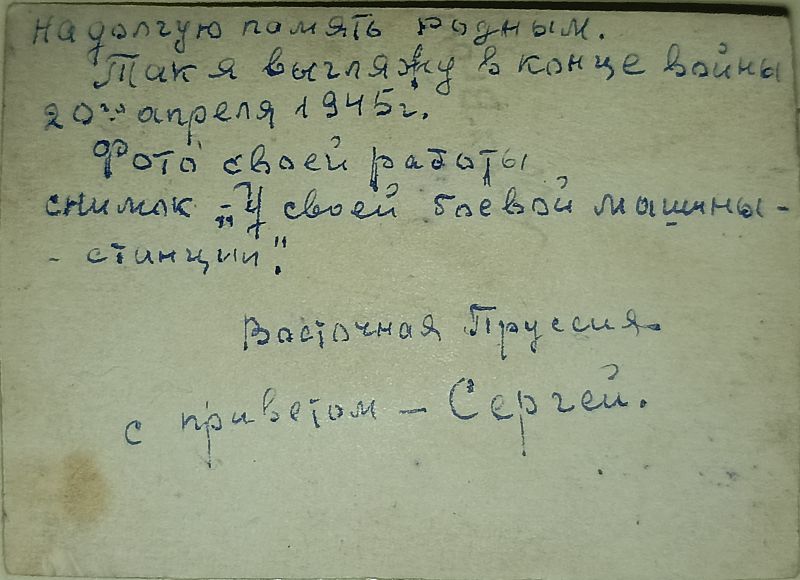 На долгую память родным.
Так я выгляжу в конце войны
20го апреля 1945г.
Фото своей работы
снимок - "У своей боевой машины -
- станции".
Восточная Пруссия.
с приветом - Сергей.